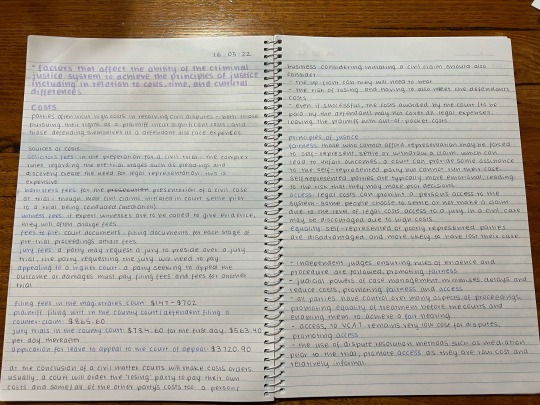 16.05.22
- factors that affect the ability of the criminal
justice system to achieve the principles of justice
including in relation to costs, time, and cultural
differences
COSTS
parties often incur high costs in resolving civil disputes - both those
pursuing their rights as a plaintiff incur significant costs, and
those defending themselves as a defendant also face expenses.
sources of costs
solicitors fees in the preparation for a civil trial - the complex
rules regarding the pre-trial stages such as pleadings and
discovery create the need for legal representation, this is
expensive
barristers fees for the presentation of a civil case
at trial, though most civil claims initiated in court settle prior
to a trial being conducted (mediation)
witness fees if expert witnesses are to be called to give evidence,
they will often charge fees
fees to file court documents - filing documents for each stage of
pre-trial proceedings attract fees
jury fees a party may request a jury to preside over a jury
trial, the party requesting the jury will need to pay
appealing to a higher court: a party seeking to appeal the
outcome or damages must pay filing fees and fees for another
trial
filing fees in the magistrates court: $147-$702
plaintiff filing writ in the county court/defendant filing a
counter claim: $865.60
jury trials in the county court: $734.60 for the first day, $563.40
per day thereafter
application for leave to appeal to the court of appeal: $3720.90
at the conclusion of a civil matter courts will make costs orders.
usually, a court will order the 'losing' party to pay their own
costs and some/all of the other party's costs too. a person/
business considering initiating a civil claim should also
consider
- the up front cost they will need to bear
- the risk of losing, and having to also meet the defendants
costs
- even if successful, the costs awarded by the court (to be
paid by the defendant) may not cover all legal expenses,
leaving the plaintiff with out-of-pocket costs
principles of justice
fairness: those who cannot afford representation may be forced
to self-represent, settle or withdraw claim, which can
lead to unfair outcomes. a court can provide some assistance
to the self-represented party but cannot run their case.
self-represented parties are typically more emotional, leading
to the risk that they may make poor decisions.
access: legal costs can prevent a person's access to the
system - some people choose to settle or not make a claim
due to the level of legal costs. access to a jury in a civil case
may be discouraged due to high costs.
equality: self-represented or poorly represented parties
are disadvantaged and more likely to have lost their case.
- independent judges ensuring rules of evidence and
procedure are followed, promoting fairness
- judicial powers of case management minimises delays and
reduce costs, promoting fairness and access
- all parties have control over many aspects of proceedings,
promoting equality of treatment before the courts and
enabling them to achieve a fair hearing
- access, to VCAT, remains very low cost for disputes,
promoting access
- the use of dispute resolution methods such as mediation
prior to the trial, promote access, as they are low cost and
relatively informal